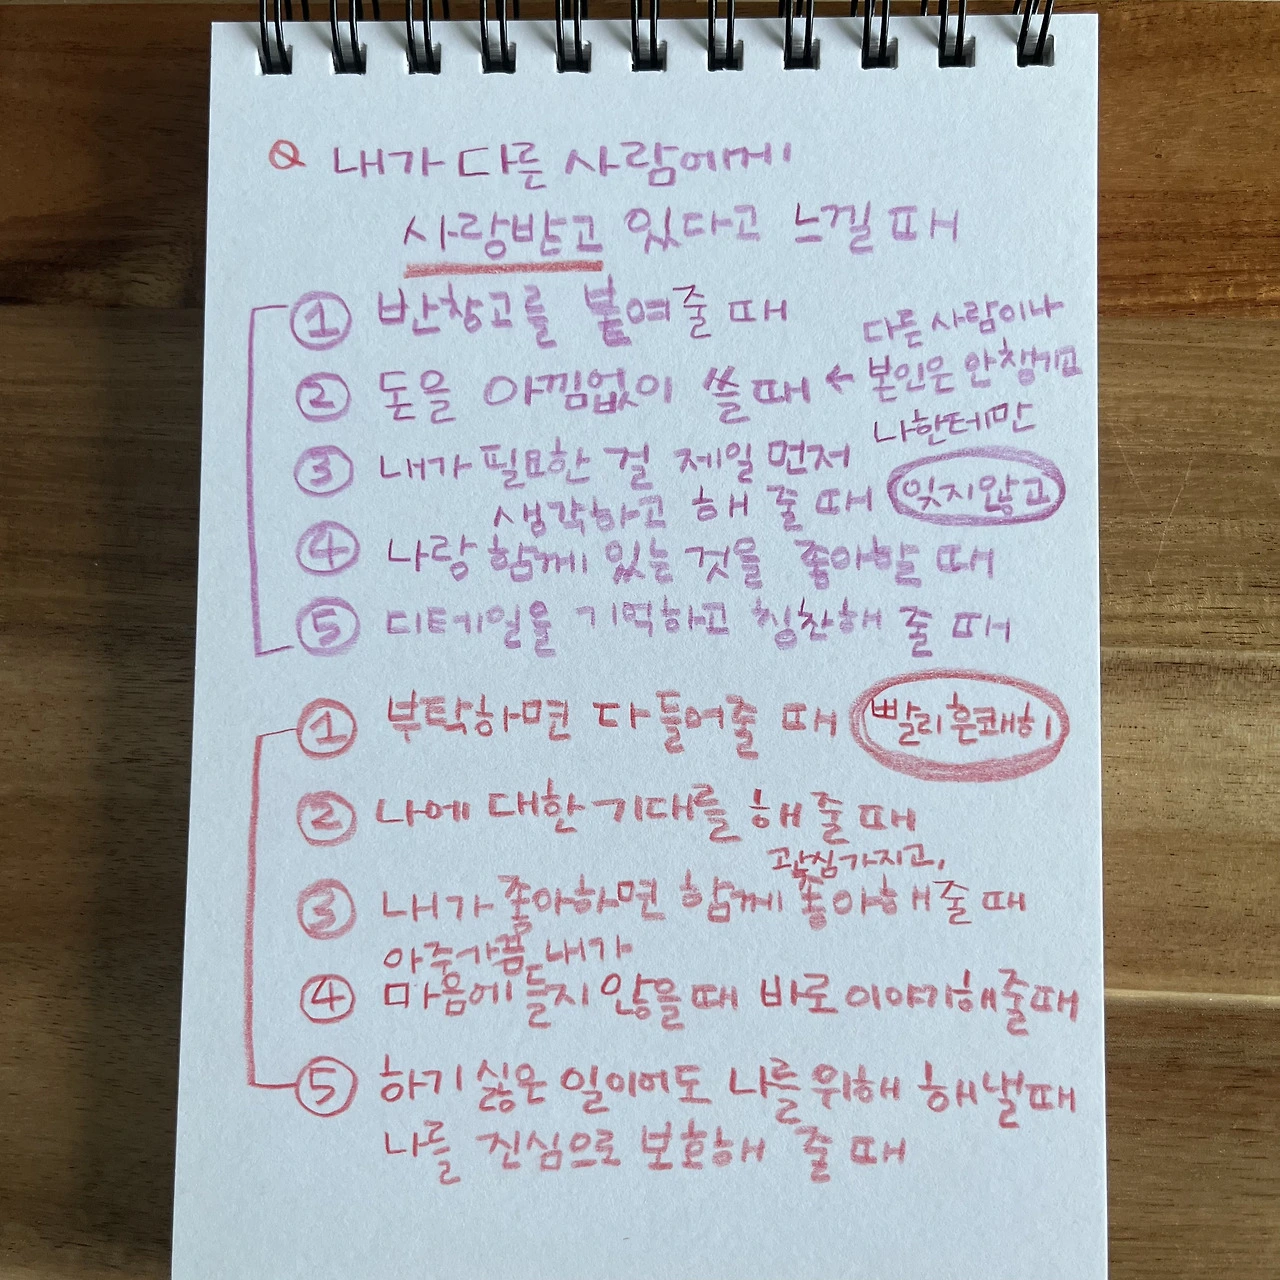 Q 내가 다른 사람에게
사랑받고 있다고 느낄 때
① 반창고를 붙여줄 때
② 돈을 아낌없이 쓸 때 ← 다른 사람이나
본인은 안 챙기고
나한테만
③ 내가 필요한 걸 제일 먼저
생각하고 해 줄 때 잊지않고
④ 나랑 함께 있는 것을 좋아할 때
⑤ 디테일을 기억하고 칭찬해 줄 때
① 부탁하면 다 들어줄 때 빨리 흔쾌히
② 나에 대한 기대를 해 줄 때
관심가지고,
③ 내가 좋아하면 함께 좋아해줄 때
아주가끔 내가
④ 마음에 들지 않을 때 바로 이야기해줄때
⑤ 하기 싫은 일이어도 나를 위해 해낼때
나를 진심으로 보호해 줄 때